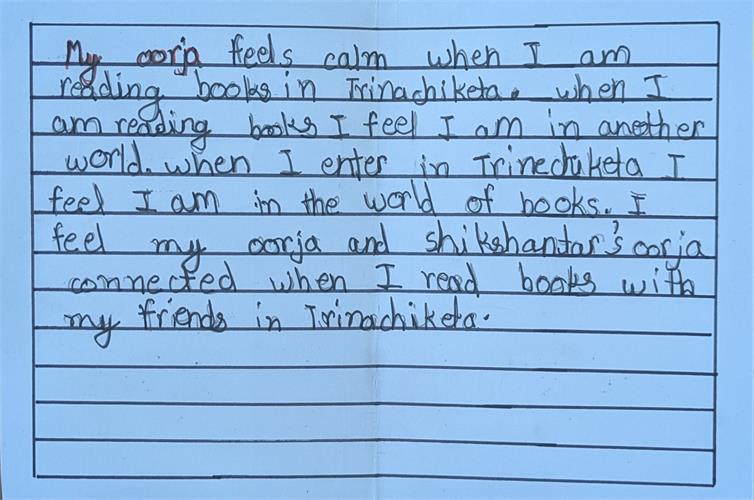 My oorja feels calm when I am
reading books in Trinachiketa. when I
am reading books I feel I am in another
world. when I enter in Trinechiketa I
feel I am in the world of books. I
feel my oorja and shikshantar's oorja
connected when I read books with
my friends in Trinachiketa.